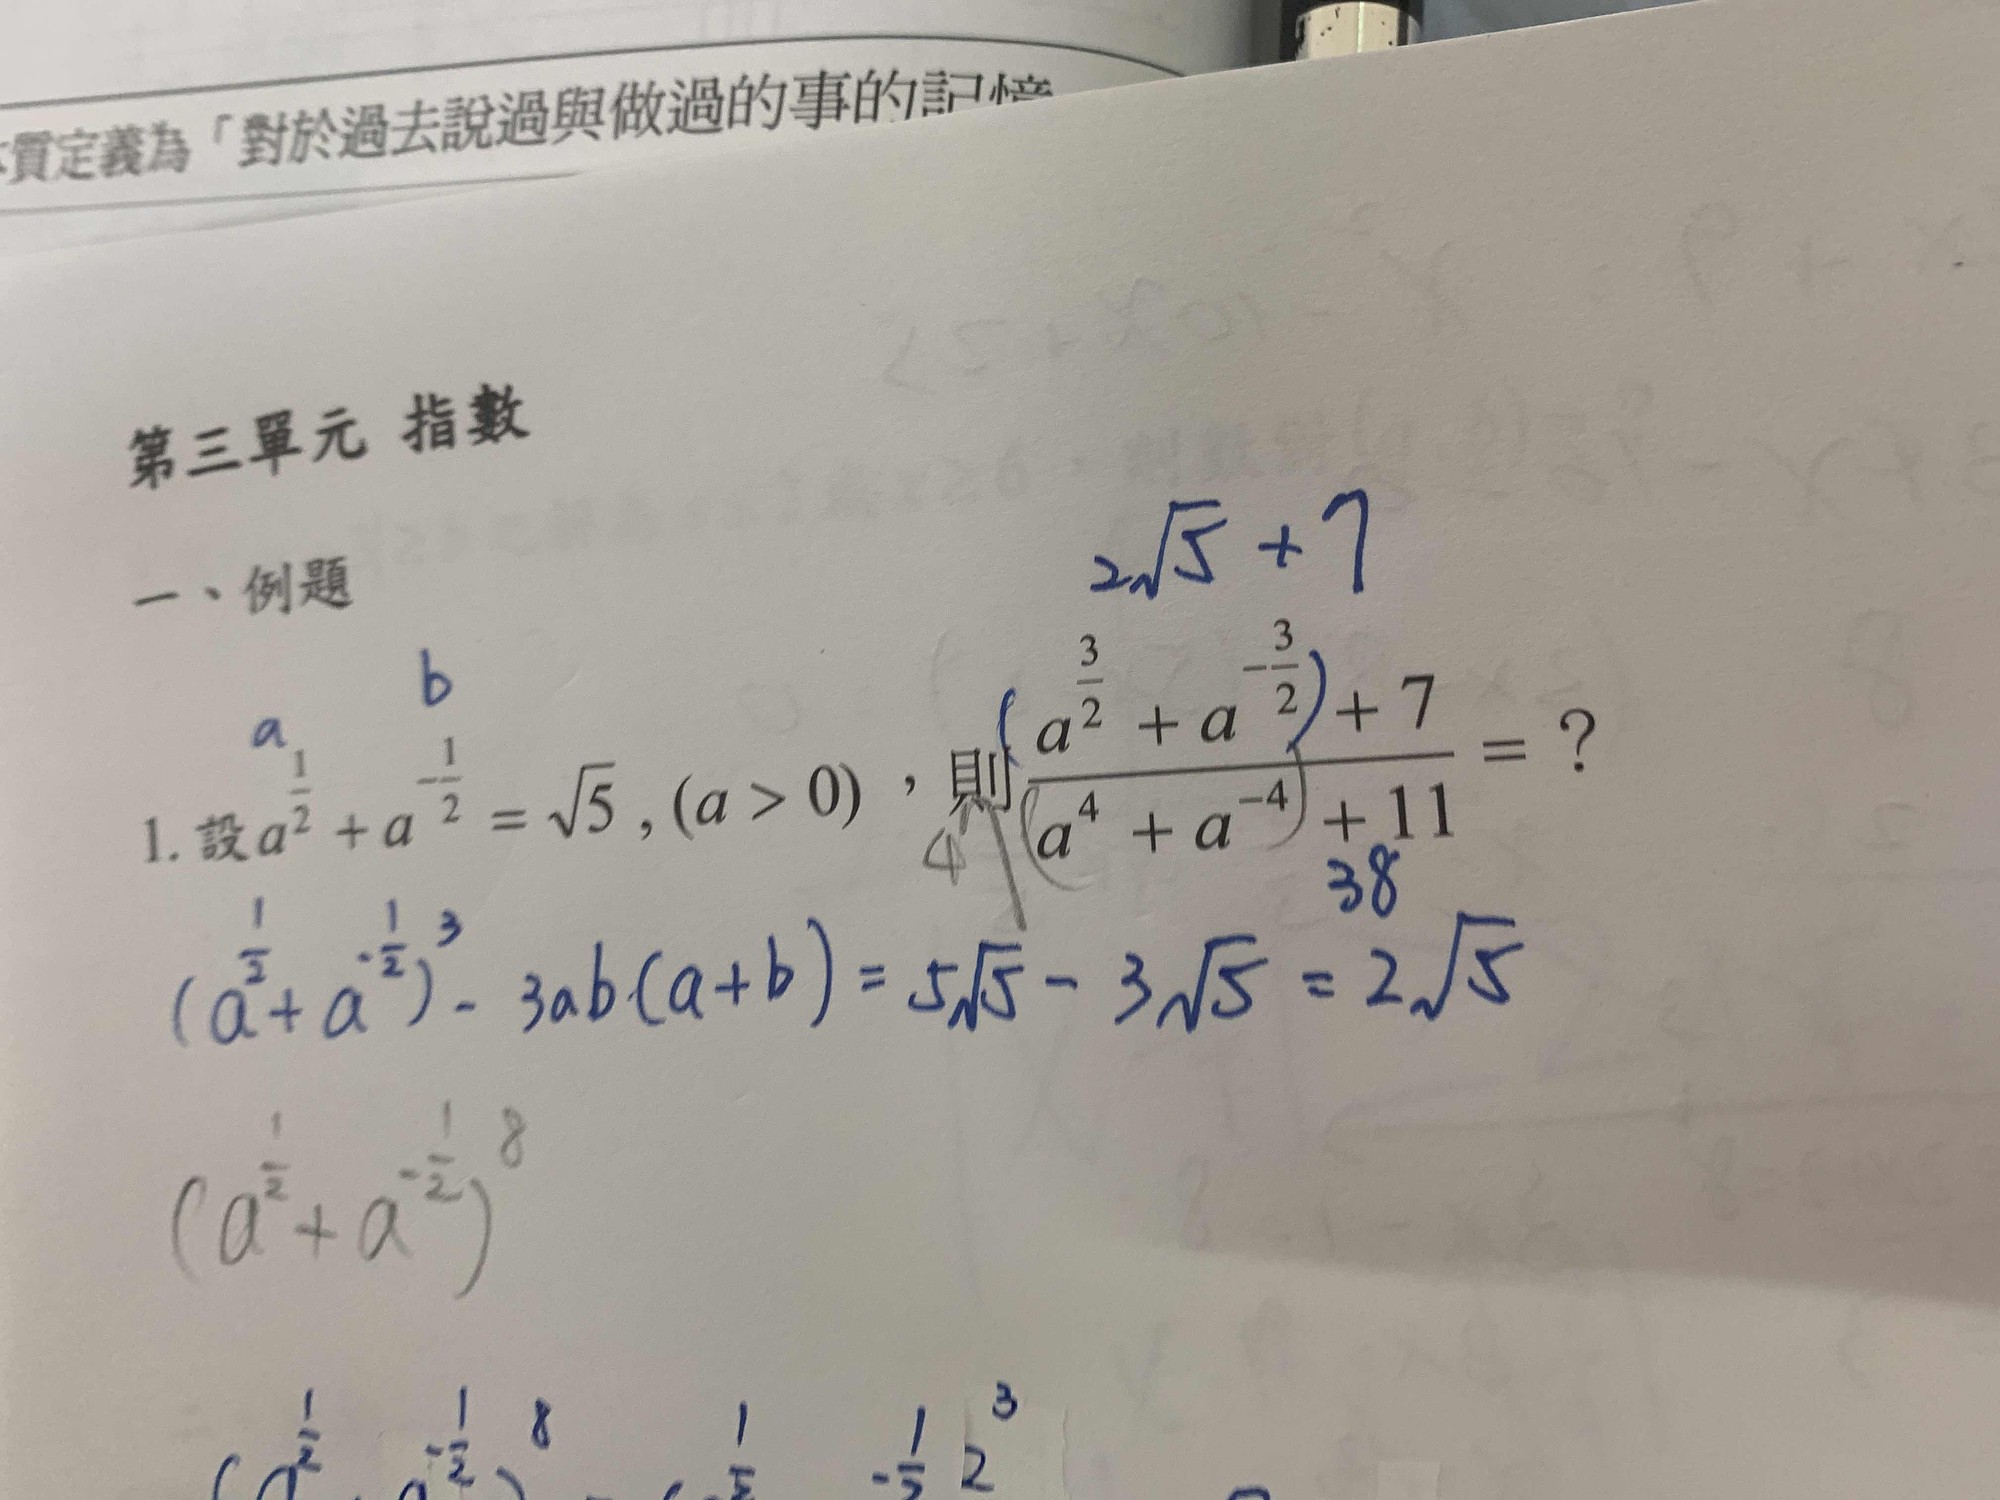 質定義為「對於過去說過與做過的事的記憶
第三單元 指數
一、例題
2√5 + 7
a b
1. 設 a^{1/2} + a^{-1/2} = √5 , (a > 0) ,則 (a^{3/2} + a^{-3/2}) + 7 / (a^4 + a^{-4}) + 11 = ?
4
38
(a^{1/2} + a^{-1/2})^3 - 3ab(a+b) = 5√5 - 3√5 = 2√5
(a^{1/2} + a^{-1/2})^8